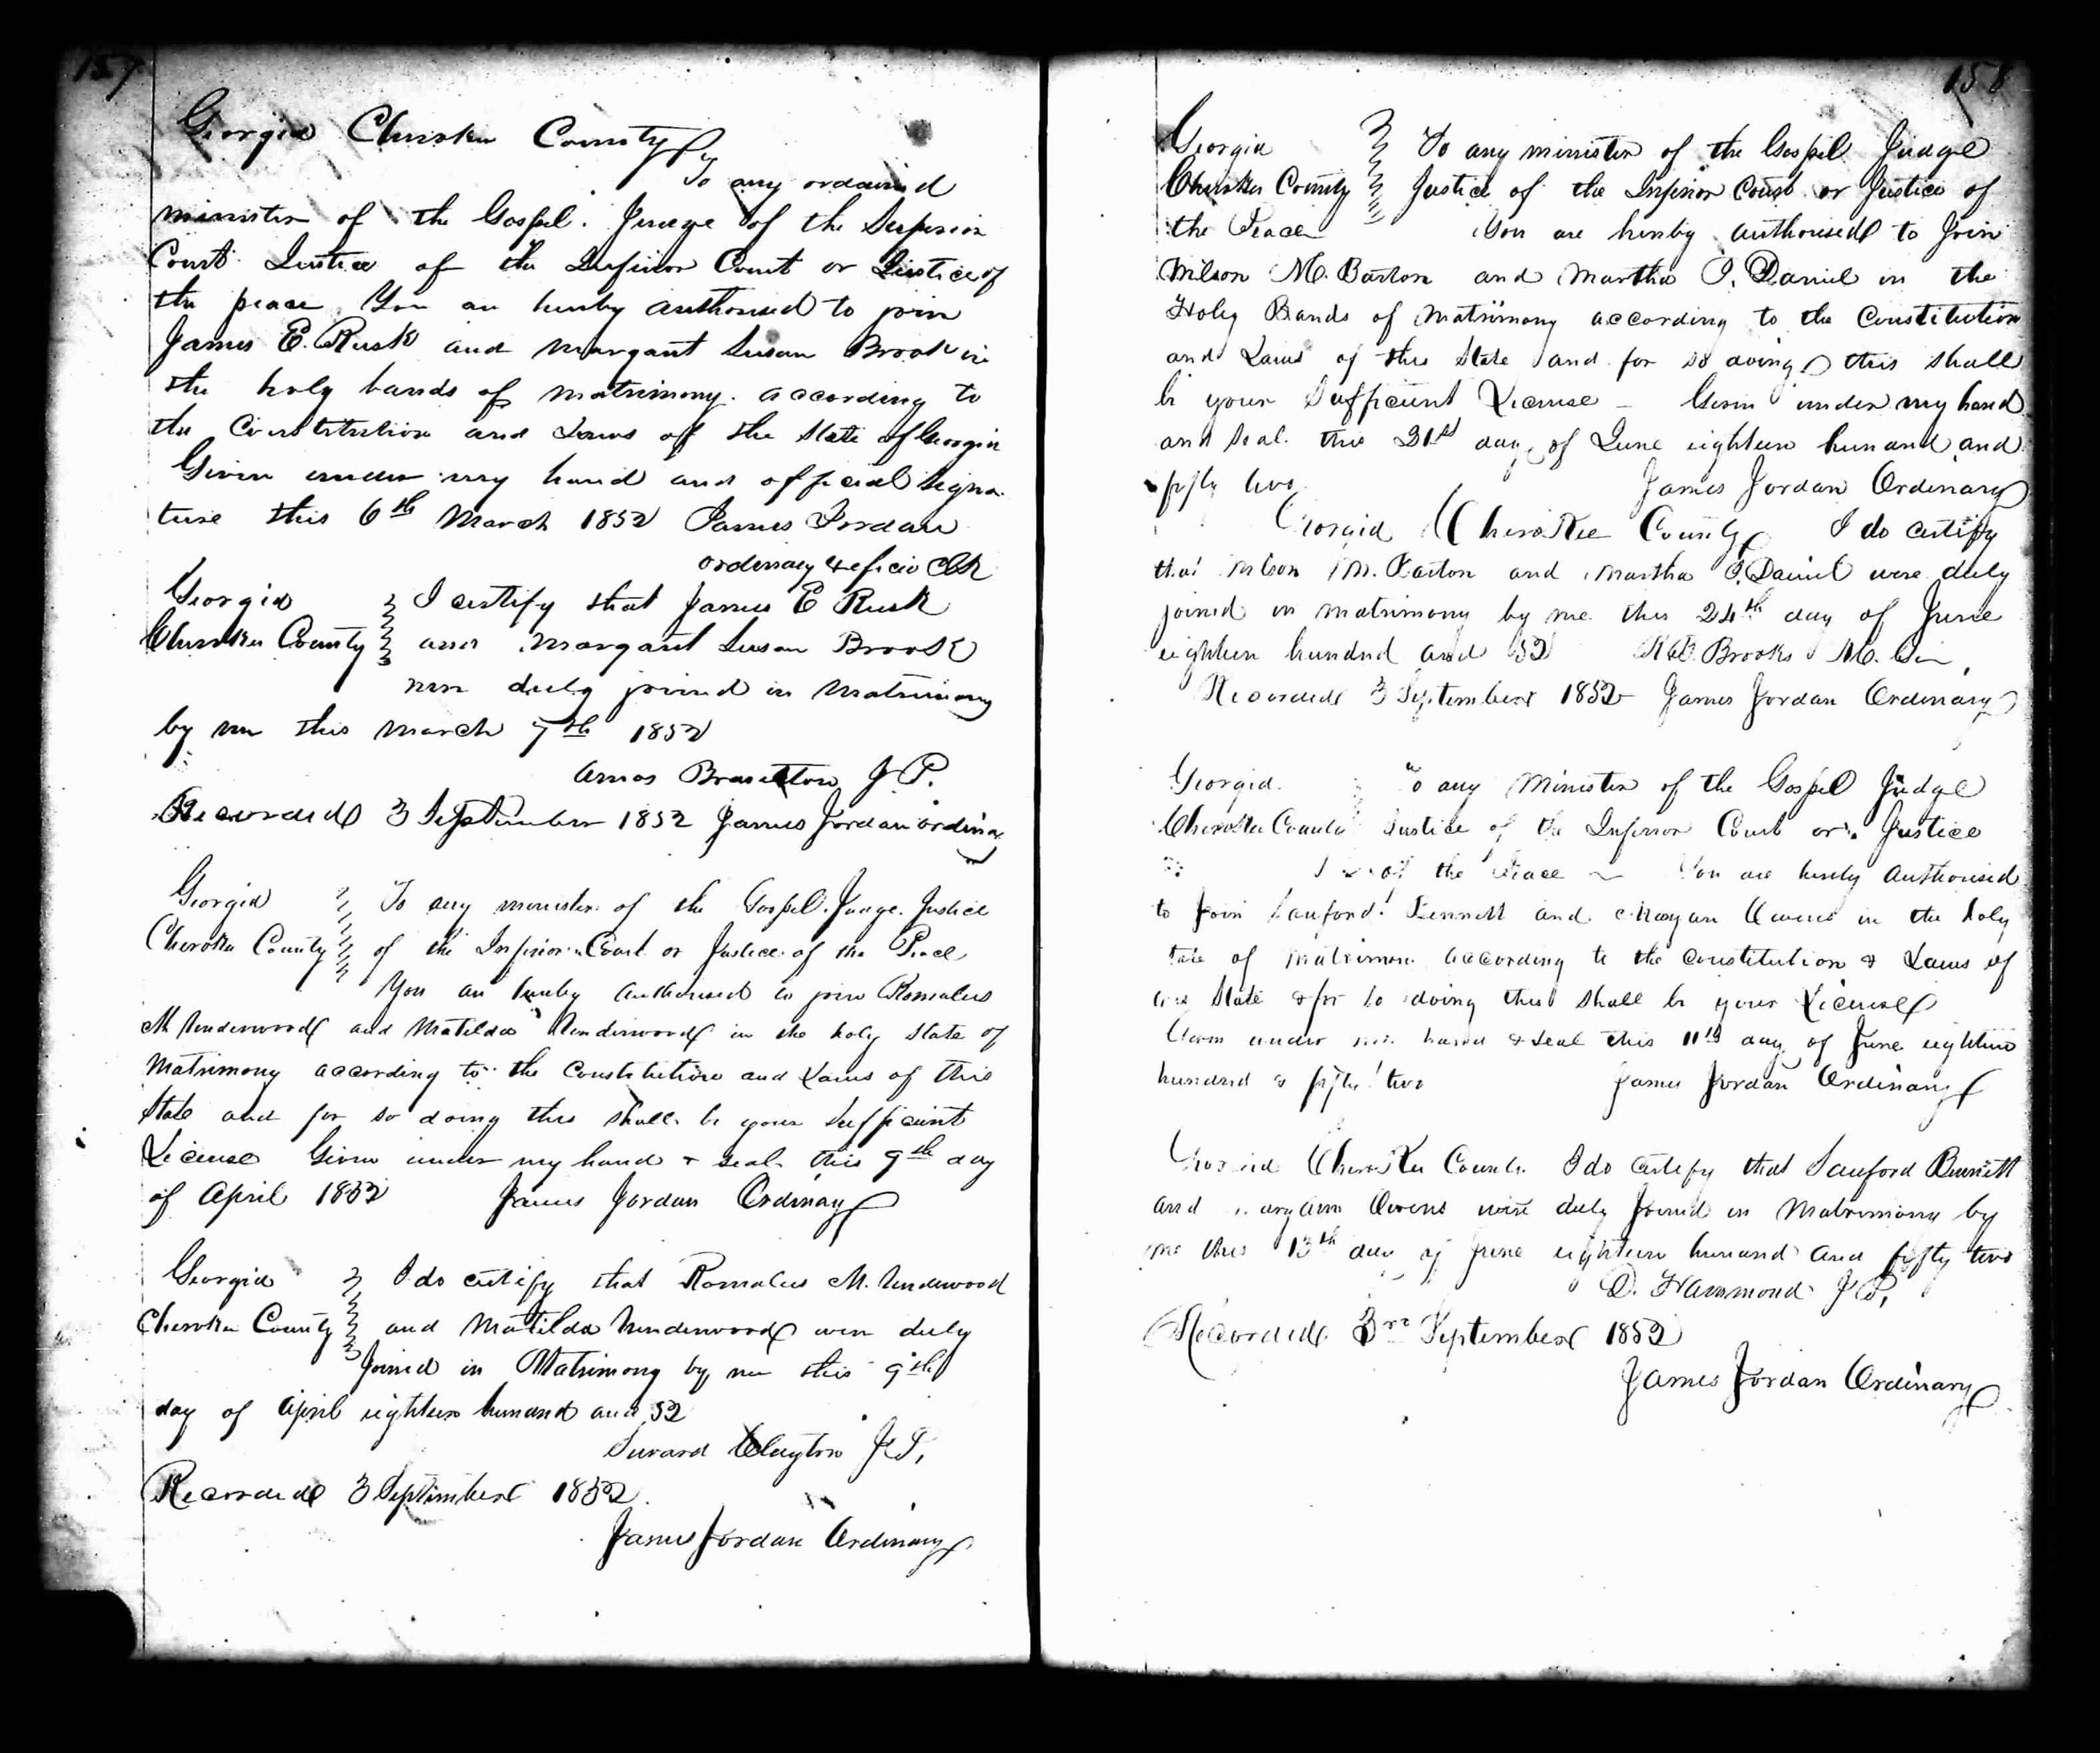 157
Georgia Cherokee County
To any ordained
minister of the Gospel. Judge of the Superior
Court Justice of the Inferior Court or Justice of
the peace You are hereby authorised to join
James E. Rusk and Margaret Susan Brook in
the holy bands of matrimony. according to
the Constitution and Laws of the State of Georgia
Given under my hand and official signa
ture this 6th March 1852 James Jordan
ordinary & eficio Clk
Georgia I certify that James E Rusk
Cherokee County and Margaret Susan Brook
were duly joined in Matrimony
by me this March 7th 1852
Amos J P.
Recorded 3 September 1852 James Jordan ordinary
Georgia To any minister of the Gospel. Judge. Justice
Cherokee County of the Inferior Court or Justice of the Peace
You are hereby authorised to join Romulus
M Underwood and Matilda Underwood in the holy state of
Matrimony according to the Constitution and Laws of this
State and for so doing this shall be your sufficient
License Given under my hand & seal this 9th day
of April 1852 James Jordan Ordinary
Georgia I do certify that Romulus M. Underwood
Cherokee County and Matilda Underwood were duly
Joined in Matrimony by me this 9th
day of April eighteen hundred and 52
Clayton J.P.
Recorded 3 September 1852
James Jordan Ordinary
158
Georgia To any minister of the Gospel Judge
Cherokee County Justice of the Inferior Court or Justice of
the Peace You are hereby authorised to Join
Wilson M. Barton and Martha J. Daniel in the
Holy Bands of Matrimony according to the Constitution
and Laws of this State and for so doing this shall
be your Sufficient License - Given under my hand
and seal this 21st day of June eighteen hundred and
fifty two James Jordan Ordinary
Georgia Cherokee County I do certify
that Wilson M. Barton and Martha J. Daniel were duly
joined in matrimony by me this 24th day of June
eighteen hundred and 52 Brooks M. G.
Recorded 3 September 1852 James Jordan Ordinary
Georgia. To any Minister of the Gospel Judge
Cherokee County Justice of the Inferior Court or Justice
of the Peace ~ You are hereby authorised
to Join Sanford Bennett and Owens in the holy
State of matrimony according to the constitution & Laws of
State & for so doing this shall be your License
Given under my hand & seal this 11th day of June eighteen
hundred & fifty two James Jordan Ordinary
Georgia Cherokee County I do certify that Sanford Bennett
and Owens were duly Joined in Matrimony by
me this 13th day of June eighteen hundred and fifty two
D. Hammond J P.
Recorded 3rd September 1852
James Jordan Ordinary